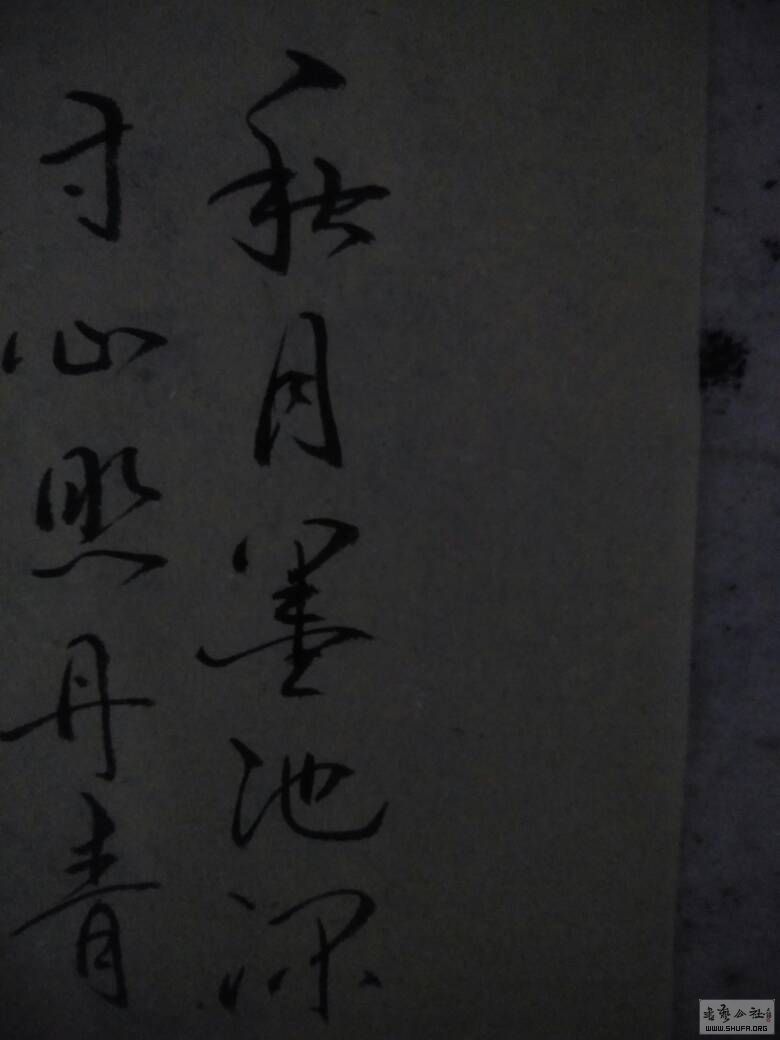 秋月墨池深
寸心照丹青
书艺公社
WWW.SHUFA.ORG